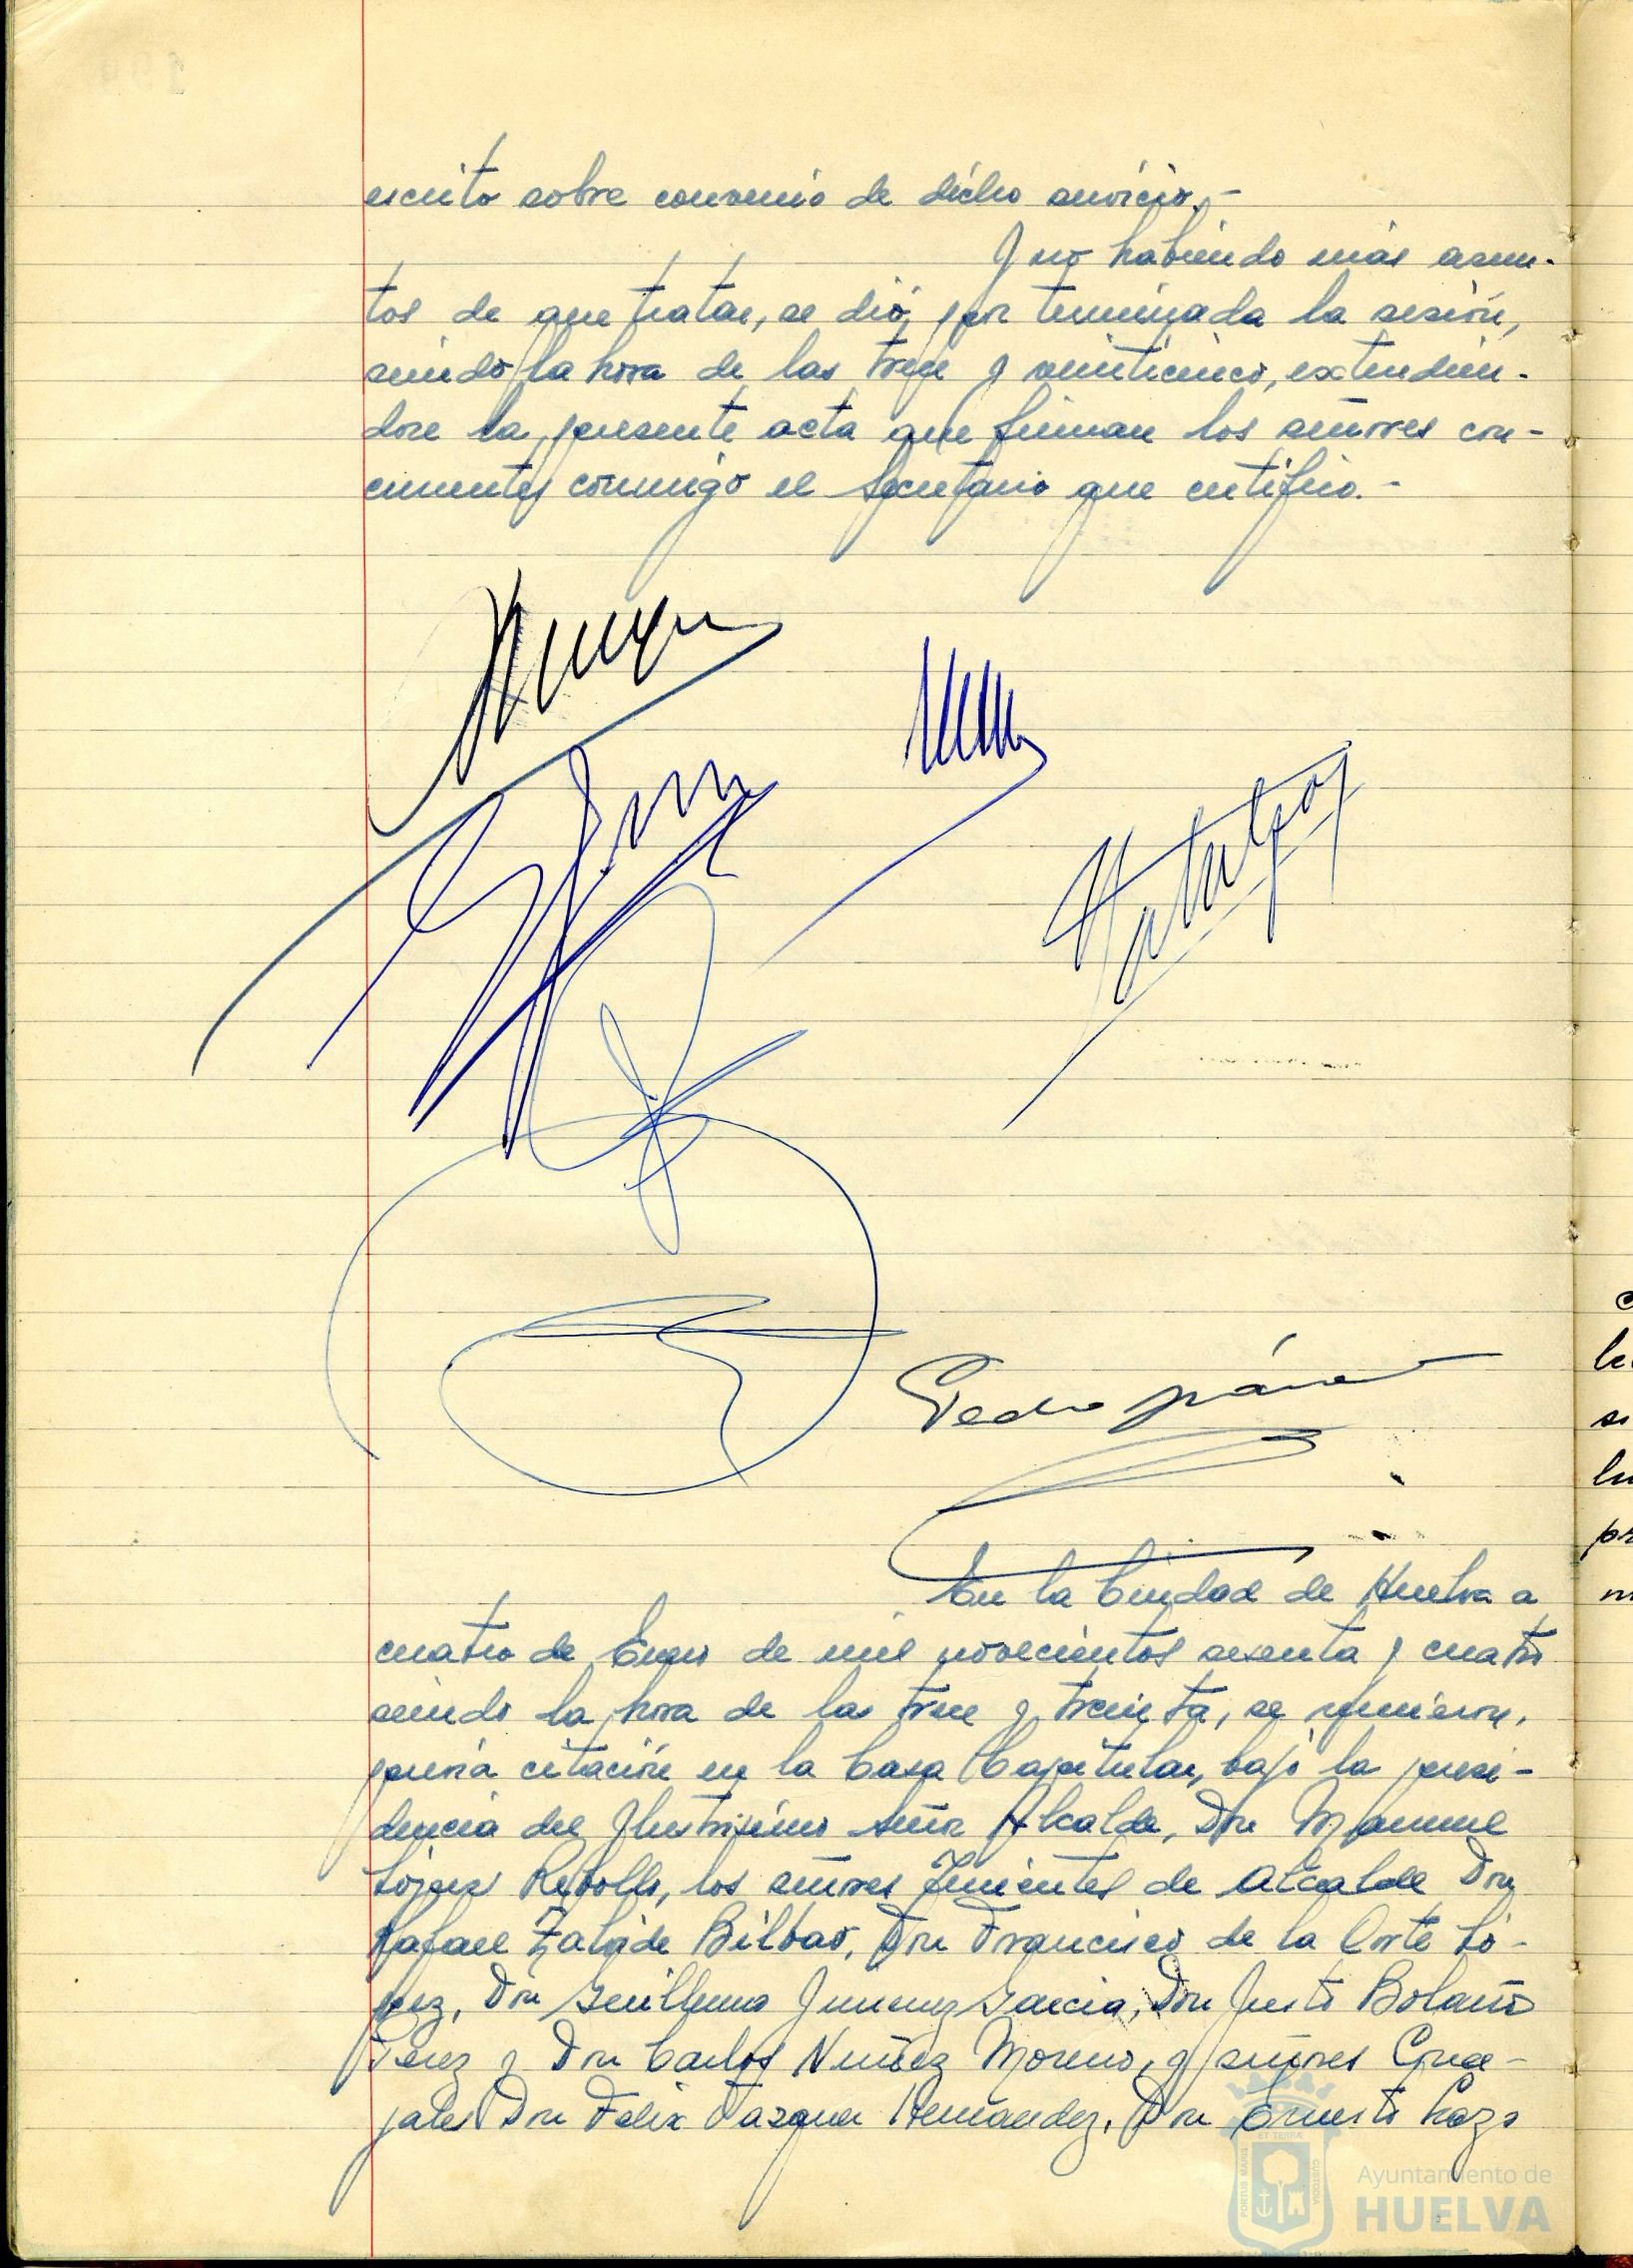 escrito sobre convenio de dicho servicio.-
Y no habiendo más asun-
tos de que tratar, se dió por terminada la sesión,
siendo la hora de las trece y veinticinco, extendién-
dose la presente acta que firman los señores con-
currentes conmigo el Secretario que certifico.-
Pedro
En la Ciudad de Huelva a
cuatro de Enero de mil novecientos sesenta y cuatro
siendo la hora de las trece y treinta, se reunieron,
previa citación en la Casa Capitular, bajo la presi-
dencia del Ilustrísimo Señor Alcalde, Don Manuel
López Rebollo, los señores Tenientes de Alcalde Don
Rafael Zalvide Bilbao, Don Francisco de la Corte Ló-
pez, Don Guillermo Jimenez Garcia, Don Justo Bolaño
Perez y Don Carlos Nuñez Moreno, y señores Conce-
jales Don Felix Vazquez Hernandez, Don Ernesto Lazo
PORTUS MARIS
ET TERRAE
CUSTODIA
Ayuntamiento de
HUELVA